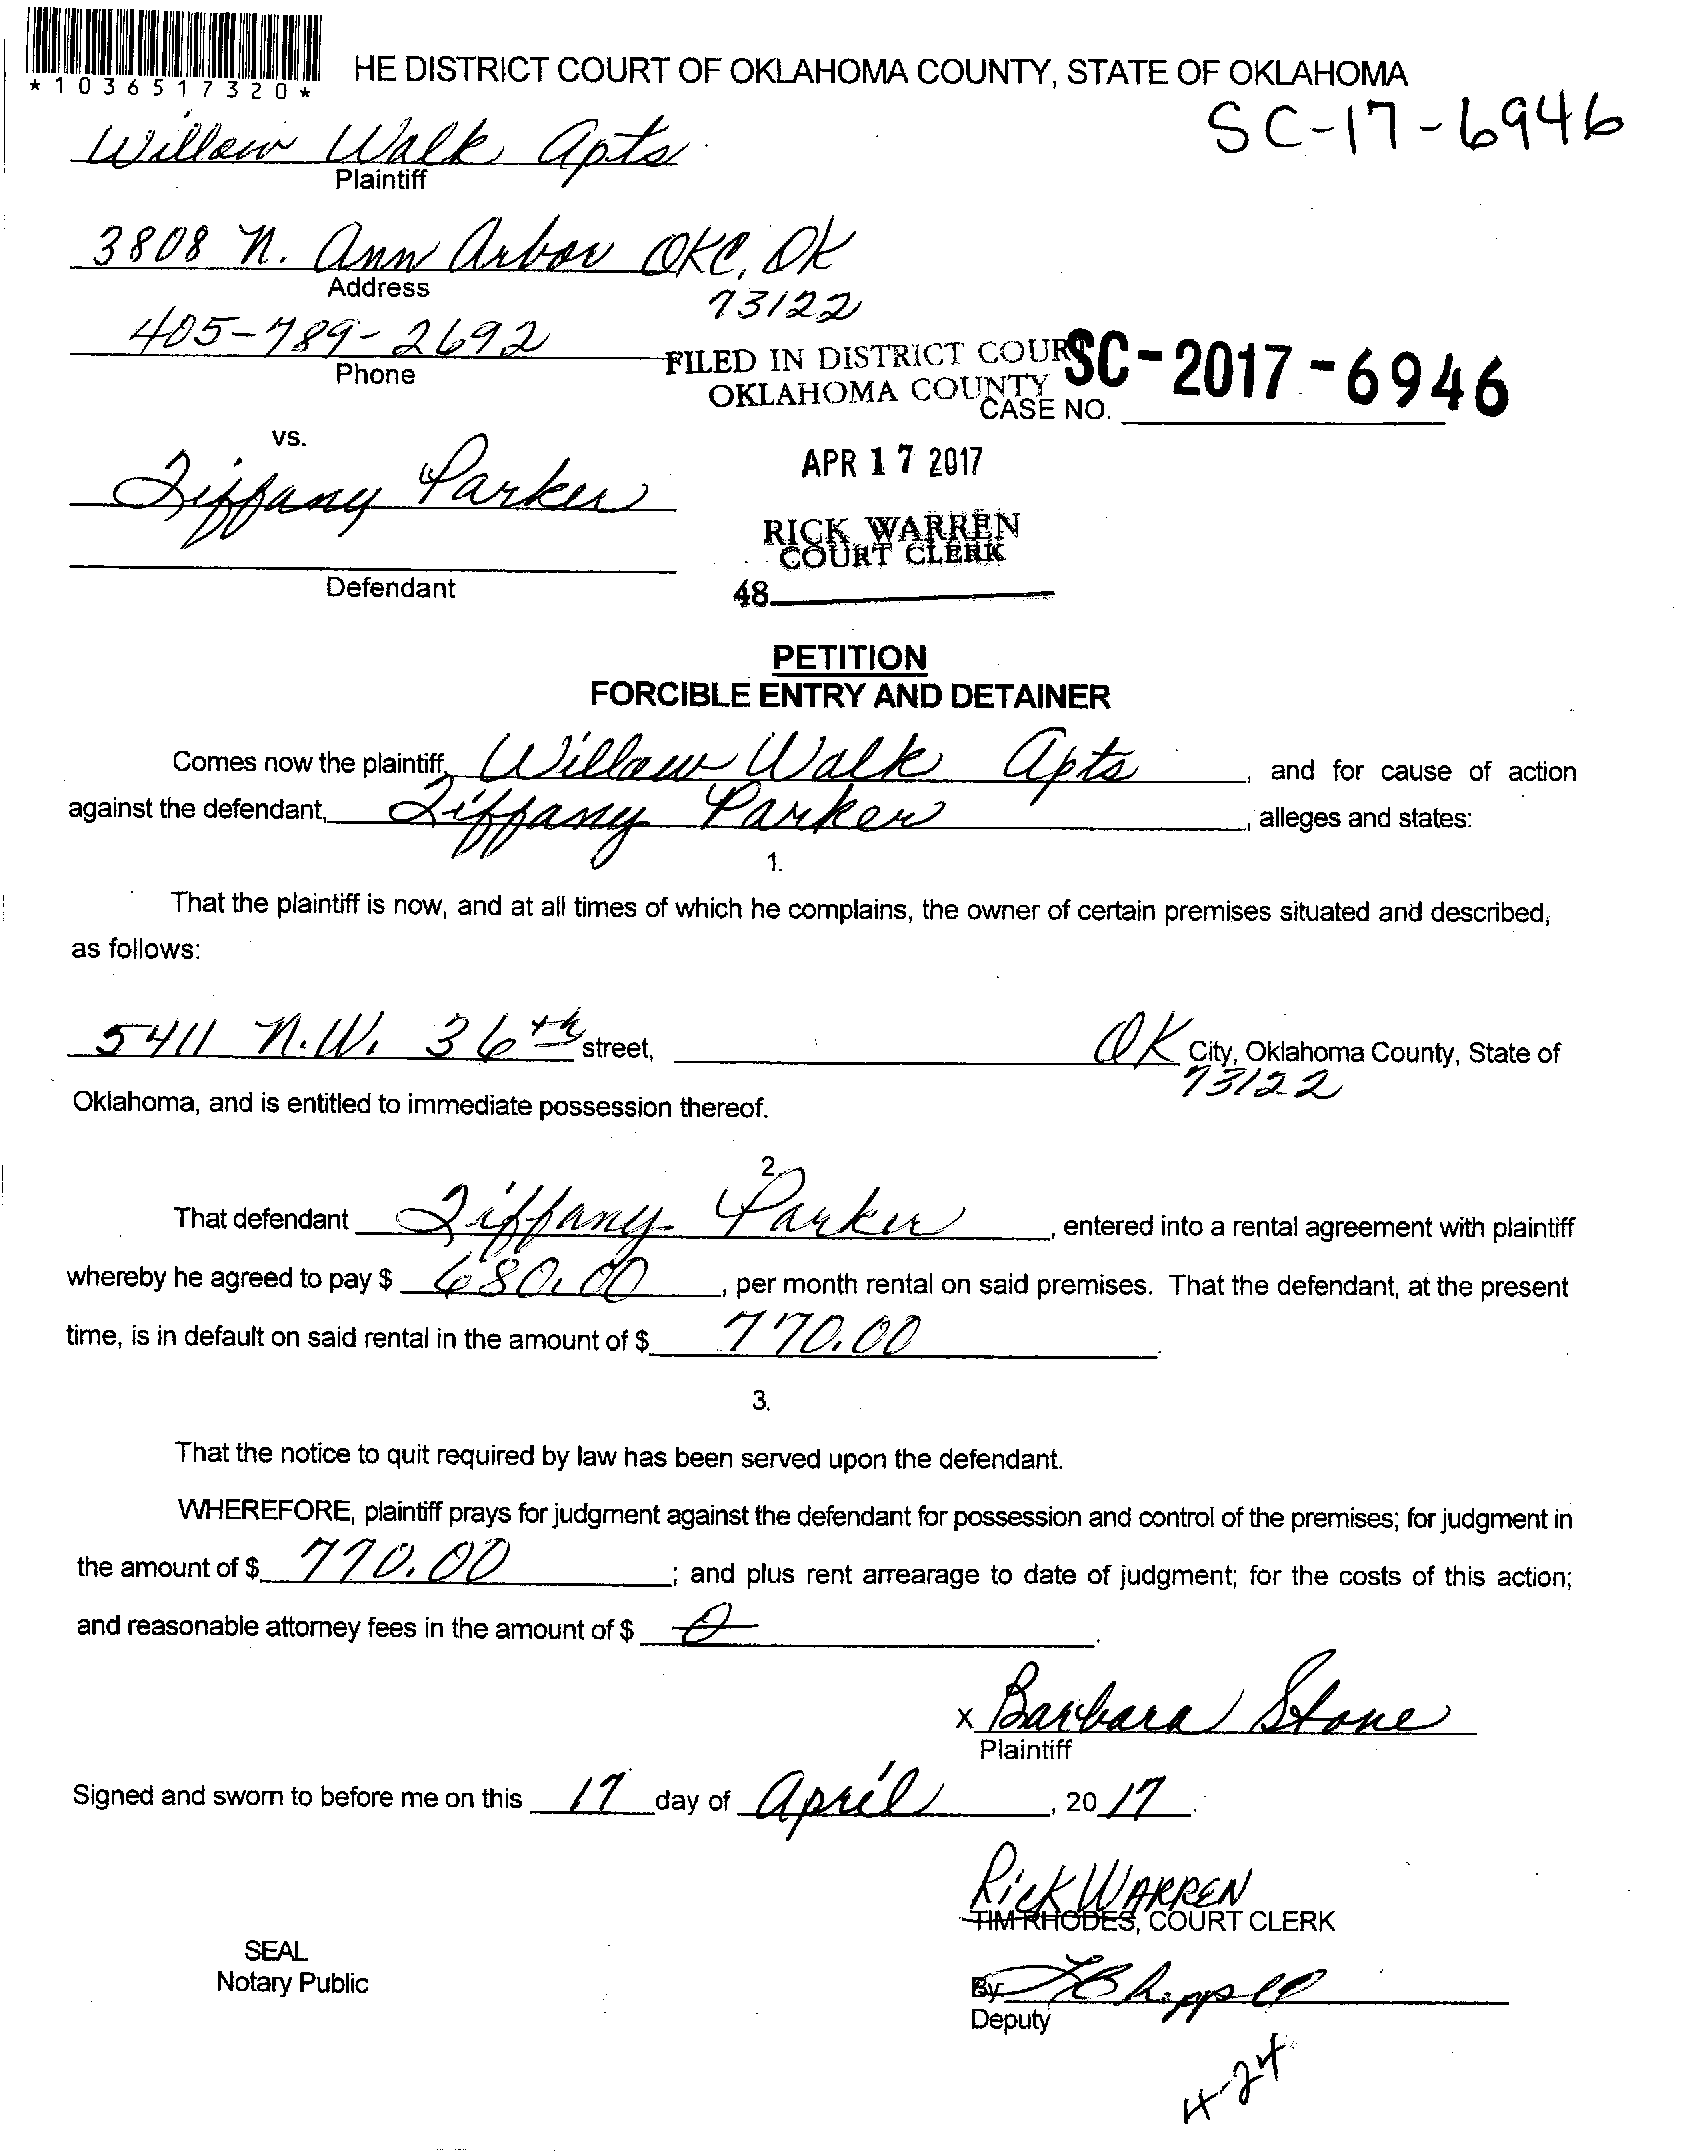 *1036517320*
HE DISTRICT COURT OF OKLAHOMA COUNTY, STATE OF OKLAHOMA
SC-17-6946
Willow Walk Apts
Plaintiff
3808 N. Ann Arbor OKC, OK
Address
73122
405-789-2692
Phone
FILED IN DISTRICT COURT
OKLAHOMA COUNTY
SC-2017-6946
CASE NO.
vs.
APR 17 2017
Tiffany Parker
RICK WARREN
COURT CLERK
Defendant
48
PETITION
FORCIBLE ENTRY AND DETAINER
Comes now the plaintiff, Willow Walk Apts, and for cause of action
against the defendant, Tiffany Parker, alleges and states:
1.
That the plaintiff is now, and at all times of which he complains, the owner of certain premises situated and described,
as follows:
5411 N.W. 36th street, OK City, Oklahoma County, State of
73122
Oklahoma, and is entitled to immediate possession thereof.
2.
That defendant Tiffany Parker, entered into a rental agreement with plaintiff
whereby he agreed to pay $ 680.00, per month rental on said premises. That the defendant, at the present
time, is in default on said rental in the amount of $ 770.00.
3.
That the notice to quit required by law has been served upon the defendant.
WHEREFORE, plaintiff prays for judgment against the defendant for possession and control of the premises; for judgment in
the amount of $ 770.00; and plus rent arrearage to date of judgment; for the costs of this action;
and reasonable attorney fees in the amount of $ 0.
x Barbara Stone
Plaintiff
Signed and sworn to before me on this 17 day of April, 2017.
Rick WARREN
TIM RHODES, COURT CLERK
SEAL
Notary Public
By
Deputy
4-24